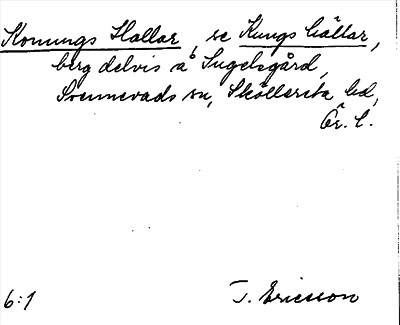 Konungs Hallar, se Kungs hällar,
berg delvis å Ingelsgård,
Svennevads sn, Sköllersta hd,
Ör. l.
6:1 T. Ericsson